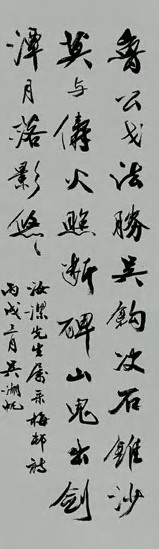 魯公戈法勝吳鈎決石錐沙
莫與儔火照斷碑山鬼出劍
潭月落影悠々
海潔先生屬录梅邨詩
丙戌三月吳湖帆